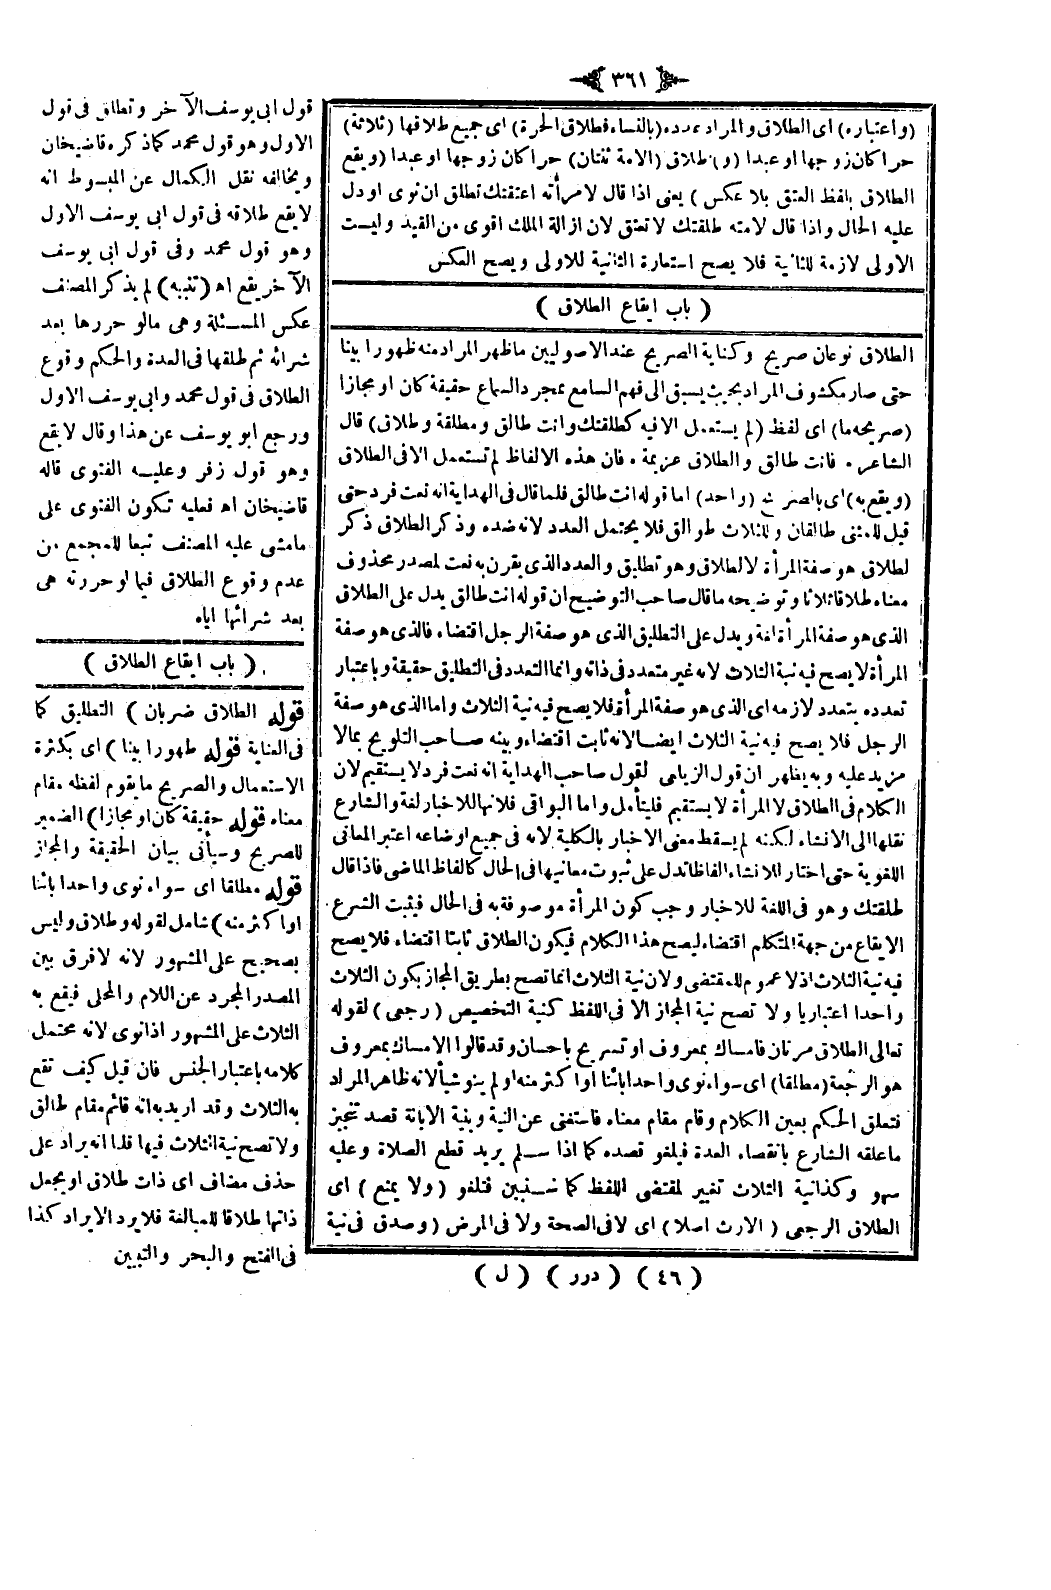 ٣٦١
(واعتباره) اى الطلاق والمراد عدده (بالنساء فطلاق الحرة) اى جميع طلاقها (ثلاثة)
حرا كان زوجها او عبدا (و) طلاق (الامة ثنتان) حرا كان زوجها او عبدا (ويقع
الطلاق بلفظ العتق بلا عكس) يعنى اذا قال لامرأته اعتقتك تطلق ان نوى او دل
عليه الحال واذا قال لامته طلقتك لا تعتق لان ازالة الملك اقوى من القيد وليست
الاولى لازمة للثانية فلا يصح استعارة الثانية للاولى ويصح العكس
( باب ايقاع الطلاق )
الطلاق نوعان صريح وكناية الصريح عند الاصوليين ما ظهر المراد منه ظهورا بينا
حتى صار مكشوف المراد بحيث يسبق الى فهم السامع بمجرد السماع حقيقة كان او مجازا
(صريحه ما) اى لفظ (لم يستعمل الا فيه كطلقتك وانت طالق ومطلقة وطلاق) قال
الشاعر • فانت طالق والطلاق عزيمة • فان هذه الالفاظ لم تستعمل الا فى الطلاق
(ويقع به) اى بالصريح (واحد) اما قوله انت طالق فلما قال فى الهداية انه نعت فرد حتى
قيل للمثنى طالقان وللثلاث طوالق فلا يحتمل العدد لانه ضده وذكر الطلاق ذكر
لطلاق هو صفة المرأة لا لطلاق وهو تطليق والعدد الذى يقرن به نعت لمصدر محذوف
معناه طلاقا ثلاثا وتوضيحه ما قال صاحب التوضيح ان قوله انت طالق يدل على الطلاق
الذى هو صفة المرأة لغة ويدل على التطليق الذى هو صفة الرجل اقتضاء فالذى هو صفة
المرأة لا يصح فيه نية الثلاث لانه غير متعدد فى ذاته وانما التعدد فى التطليق حقيقة وباعتبار
تعدده يتعدد لازمه اى الذى هو صفة المرأة فلا يصح فيه نية الثلاث واما الذى هو صفة
الرجل فلا يصح فيه نية الثلاث ايضا لانه ثابت اقتضاء وبينه صاحب التلويح بما لا
مزيد عليه وبه يظهر ان قول الزيلعى لقول صاحب الهداية انه نعت فرد لا يستقيم لان
الكلام فى الطلاق لا المرأة لا يستقيم فليتأمل واما البواقى فلانها للاخبار لغة والشارع
نقلها الى الانشاء لكنه لم يسقط معنى الاخبار بالكلية لانه فى جميع اوضاعه اعتبر المعانى
اللغوية حتى اختار للانشاء الفاظا تدل على ثبوت معانيها فى الحال كالفاظ الماضى فاذا قال
طلقتك وهو فى اللغة للاخبار وجب كون المرأة موصوفة به فى الحال فيثبت الشرع
الايقاع من جهة المتكلم اقتضاء ليصح هذا الكلام فيكون الطلاق ثابتا اقتضاء فلا يصح
فيه نية الثلاث اذ لا عموم للمقتضى ولان نية الثلاث انما تصح بطريق المجاز بكون الثلاث
واحدا اعتباريا ولا تصح نية المجاز الا فى اللفظ كنية التخصيص (رجعى) لقوله
تعالى الطلاق مرتان فامساك بمعروف او تسريح باحسان وقد قالوا الامساك بمعروف
هو الرجعة (مطلقا) اى سواء نوى واحدا بائنا او اكثر منه او لم ينو شيأ لانه ظاهر المراد
فتعلق الحكم بعين الكلام وقام مقام معناه فاستغنى عن النية وبنية الابانة قصد تنجيز
ما علقه الشارع بانقضاء العدة فيلغو قصده كما اذا سلم يريد قطع الصلاة وعليه
سهو وكذا نية الثلاث تغيير لمقتضى اللفظ كما سنبين فتلغو (ولا يمنع) اى
الطلاق الرجعى (الارث اصلا) اى لا فى الصحة ولا فى المرض (وصدق فى نية
قول ابى يوسف الآخر وتطلق فى قول
الاول وهو قول محمد كما ذكره قاضيخان
ويخالفه نقل الكمال عن المبسوط انه
لا يقع طلاقه فى قول ابى يوسف الاول
وهو قول محمد وفى قول ابى يوسف
الآخر يقع اه (تنبيه) لم يذكر المصنف
عكس المسئلة وهى ما لو حررها بعد
شرائه ثم طلقها فى العدة والحكم وقوع
الطلاق فى قول محمد وابى يوسف الاول
ورجع ابو يوسف عن هذا وقال لا يقع
وهو قول زفر وعليه الفتوى قاله
قاضيخان اه فعليه تكون الفتوى على
ما مشى عليه المصنف تبعا للمجمع من
عدم وقوع الطلاق فيما لو حررته هى
بعد شرائها اياه
( باب ايقاع الطلاق )
قوله الطلاق ضربان ) التطليق كما
فى العناية قوله ظهورا بينا ) اى بكثرة
الاستعمال والصريح ما يقوم لفظه مقام
معناه قوله حقيقة كان او مجازا ) الضمير
للصريح وسيأتى بيان الحقيقة والمجاز
قوله مطلقا اى سواء نوى واحدا بائنا
او اكثر منه ) شامل لقوله وطلاق وليس
بصحيح على المشهور لانه لا فرق بين
المصدر المجرد عن اللام والمحلى فيقع به
الثلاث على المشهور اذا نوى لانه محتمل
كلامه باعتبار الجنس فان قيل كيف تقع
به الثلاث وقد اريد به انه قائم مقام طالق
ولا تصح نية الثلاث فيها قلنا انه يراد على
حذف مضاف اى ذات طلاق او يجعل
ذاتها طلاقا للمبالغة فلا يرد الايراد كذا
فى الفتح والبحر والتبيين
( ٤٦ ) ( درر ) ( ل )